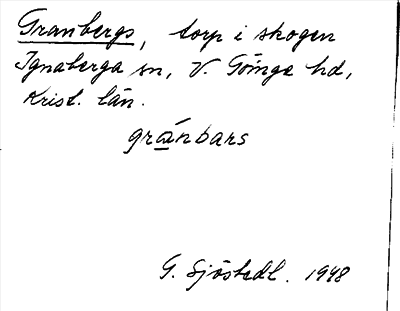 Granbergs, torp i skogen
Ignaberga sn, V. Göinge hd,
Krist. län.
gránbars
G. Sjöstedt. 1948